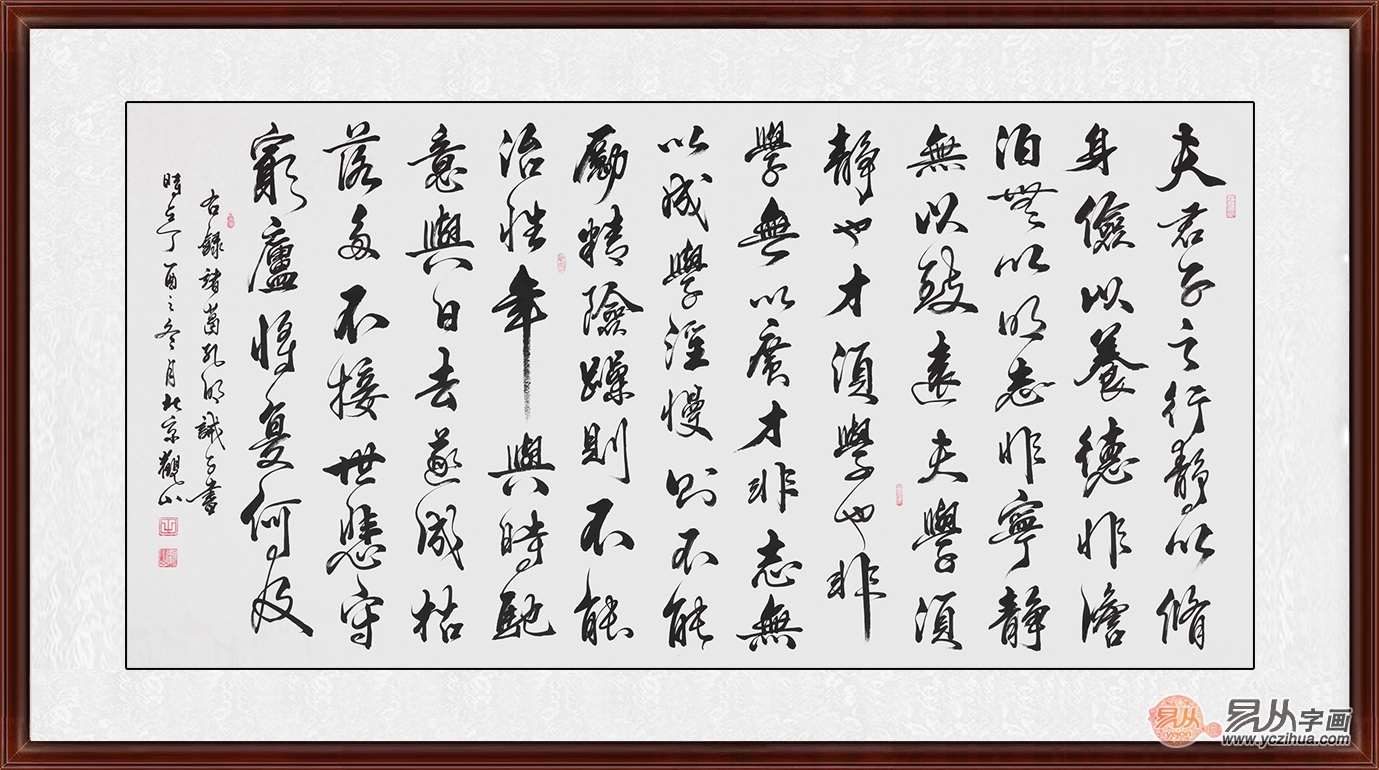 夫君子之行静以脩
身儉以養德非澹
泊無以明志非寧静
無以致遠夫學須
静也才須學也非
學無以廣才非志無
以成學淫慢則不能
勵精險躁則不能
治性年與時馳
意與日去遂成枯
落多不接世悲守
窮廬將復何及
右錄諸葛孔明誡子書
時在丁酉之冬月北京觀山
易从
yicojon
易从字画
www.yczihua.com